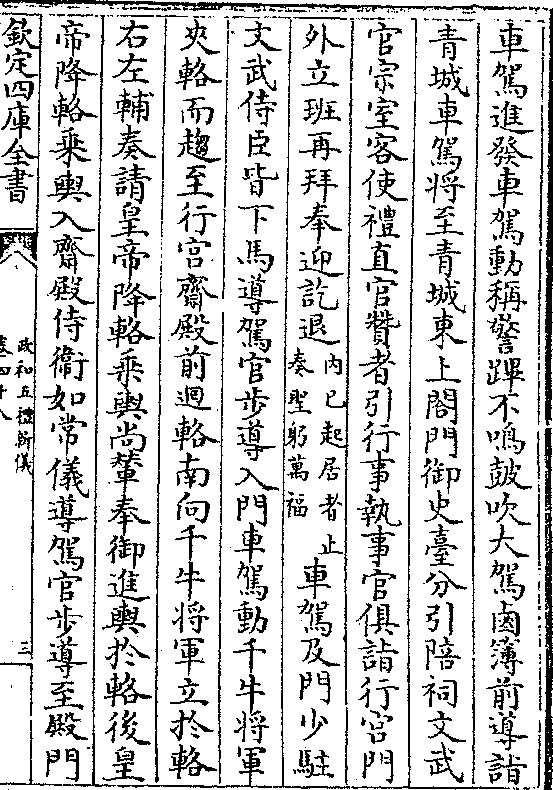 車駕進發車駕動稱警蹕不鳴鼓吹大駕鹵簿前導詣
青城車駕將至青城東上閤門御史臺分引陪祠文武
官宗室客使禮直官贊者引行事執事官俱詣行宮門
外立班再拜奉迎訖退内已起居者止奏聖躬萬福車駕及門少駐
文武侍臣皆下馬導駕官步導入門車駕動千牛將軍
夾輅而趨至行宮齋殿前迴輅南向千牛將軍立於輅
右左輔奏請皇帝降輅乘輿尚輦奉御進輿於輅後皇
帝降輅乘輿入齋殿侍衛如常儀導駕官步導至殿門
欽定四庫全書
政和五禮新儀
卷四十八
三